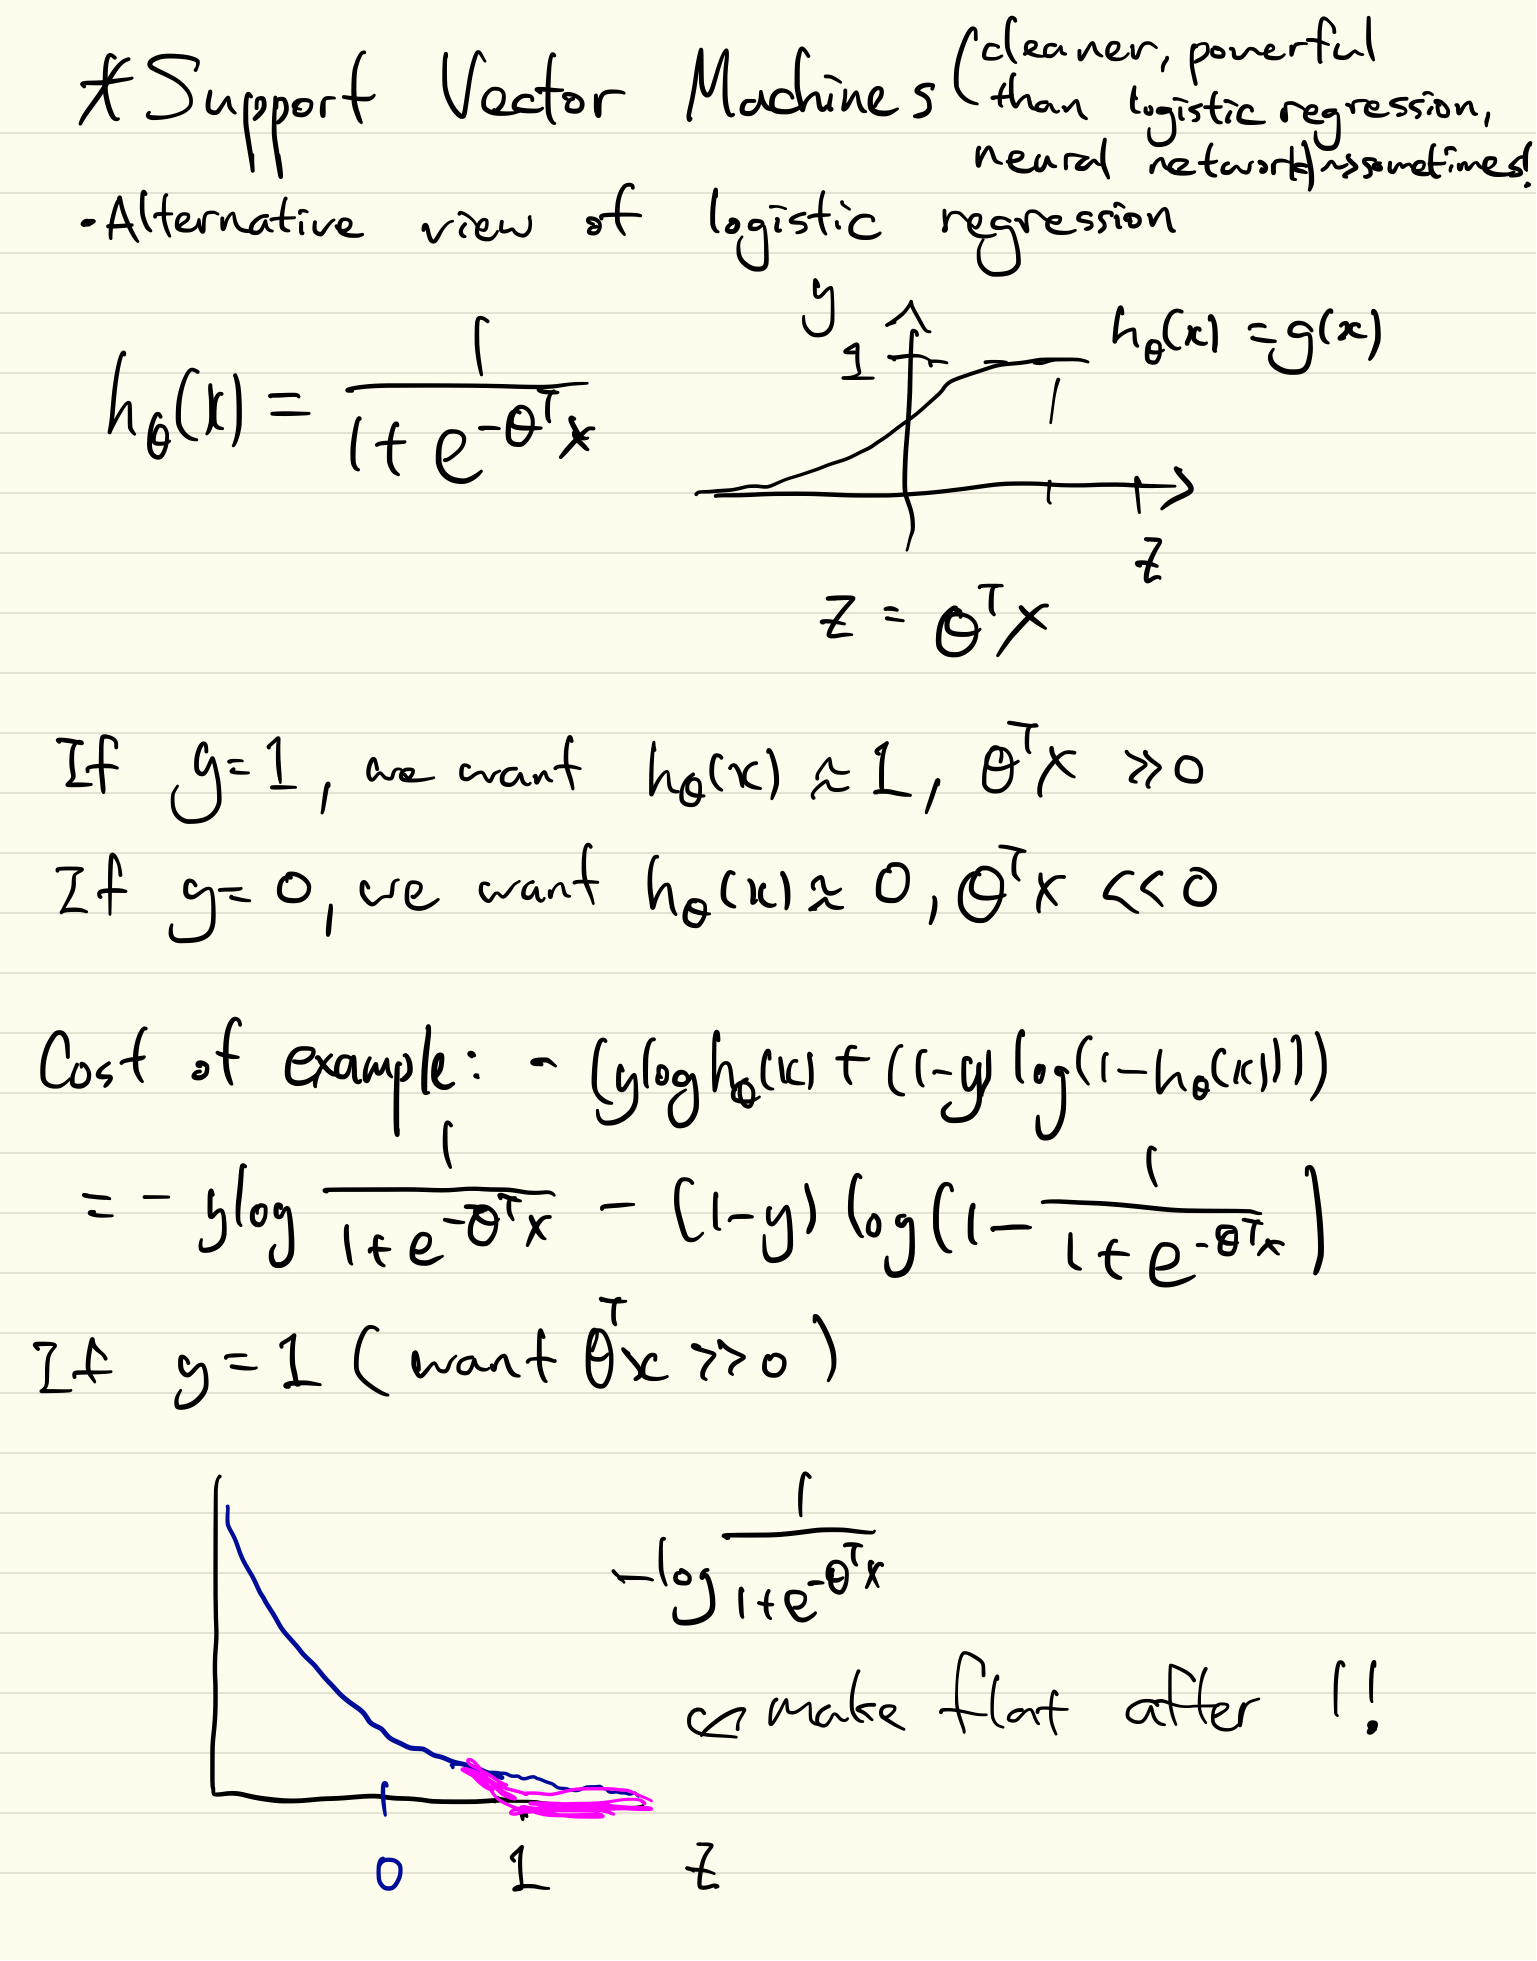 *Support Vector Machines (cleaner, powerful
than logistic regression,
neural network) ~> sometimes!
• Alternative view of logistic regression
y
1
h_θ(x) = g(x)
h_θ(x) = 1 / (1 + e^(-θ^T x))
z
z = θ^T x
If y=1, we want h_θ(x) ≈ 1, θ^T x ≫ 0
If y=0, we want h_θ(x) ≈ 0, θ^T x << 0
Cost of example: - (y log h_θ(x) + ((1-y) log(1-h_θ(x))))
= - y log 1 / (1 + e^(-θ^T x)) - (1-y) log(1 - 1 / (1 + e^(-θ^T x)))
If y = 1 (want θ^T x >> 0)
-log 1 / (1 + e^(-θ^T x))
make flat after 1!
0 1 z